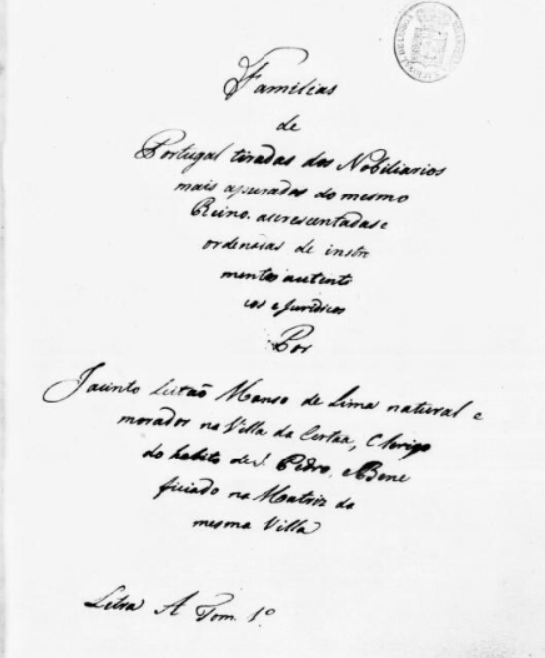 Familias
de
Portugal tiradas dos Nobiliarios
mais apurados do mesmo
Reino. acrescentadas e
ordenadas de instru
mentos autenti
cos e Juridicos
Por
Jacinto Leitaõ Manso de Lima natural e
morador na Villa da Certaã, Clerigo
do habito de S. Pedro, e Bene
ficiado na Matriz da
mesma Villa
Letra A Tom. 1º